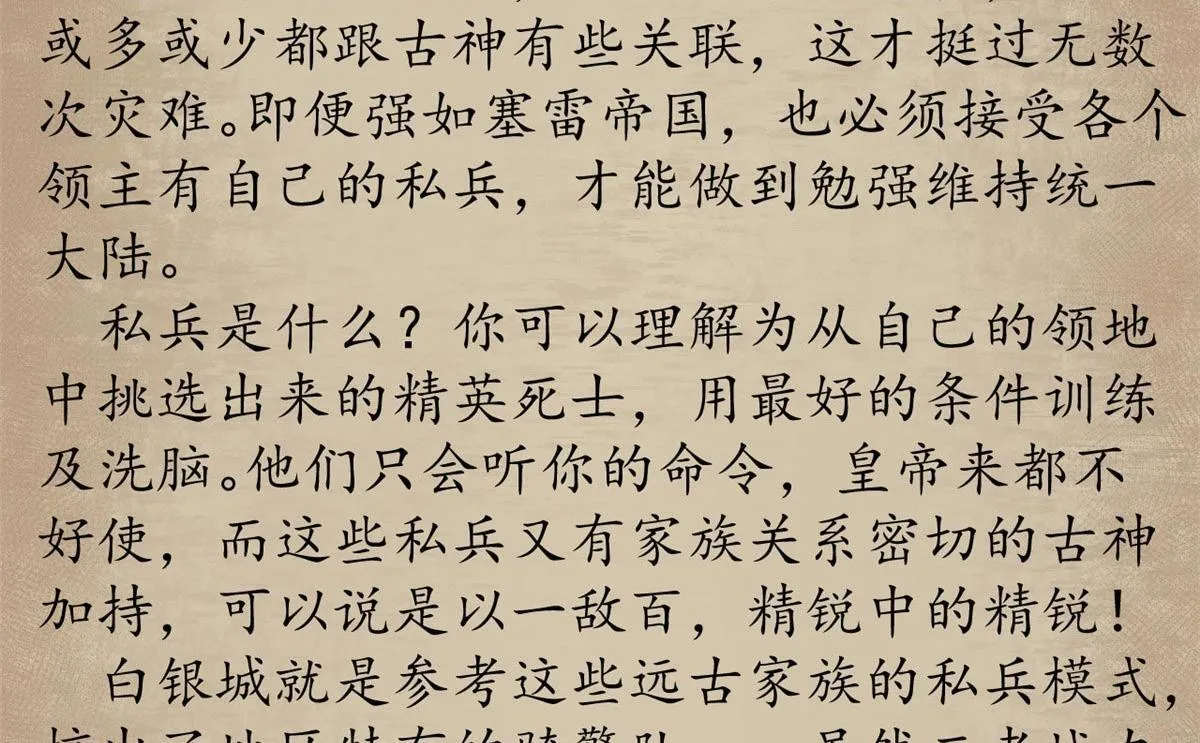 或多或少都跟古神有些关联，这才挺过无数
次灾难。即便强如塞雷帝国，也必须接受各个
领主有自己的私兵，才能做到勉强维持统一
大陆。
私兵是什么？你可以理解为从自己的领地
中挑选出来的精英死士，用最好的条件训练
及洗脑。他们只会听你的命令，皇帝来都不
好使，而这些私兵又有家族关系密切的古神
加持，可以说是以一敌百，精锐中的精锐！
白银城就是参考这些远古家族的私兵模式，